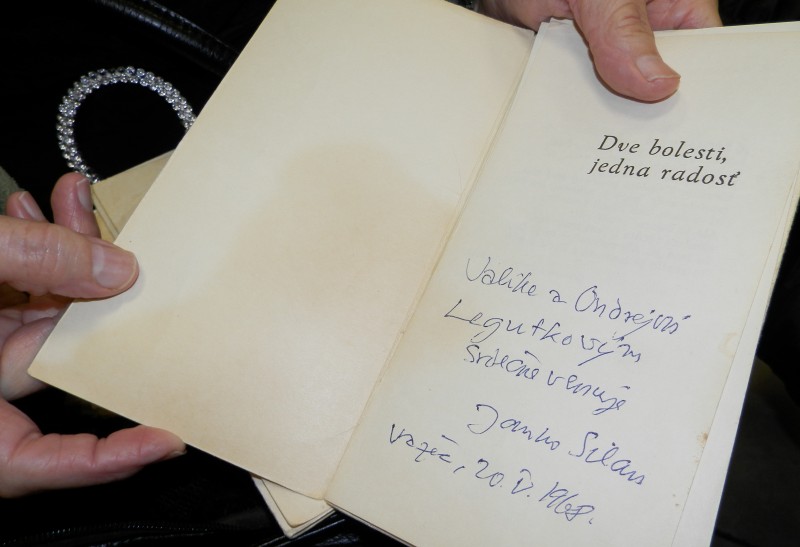 Dve bolesti,
jedna radosť
Valike a Ondrejovi
Legutkovým
Srdečne venuje
Janko Silan
Važec, 20. V. 1968.